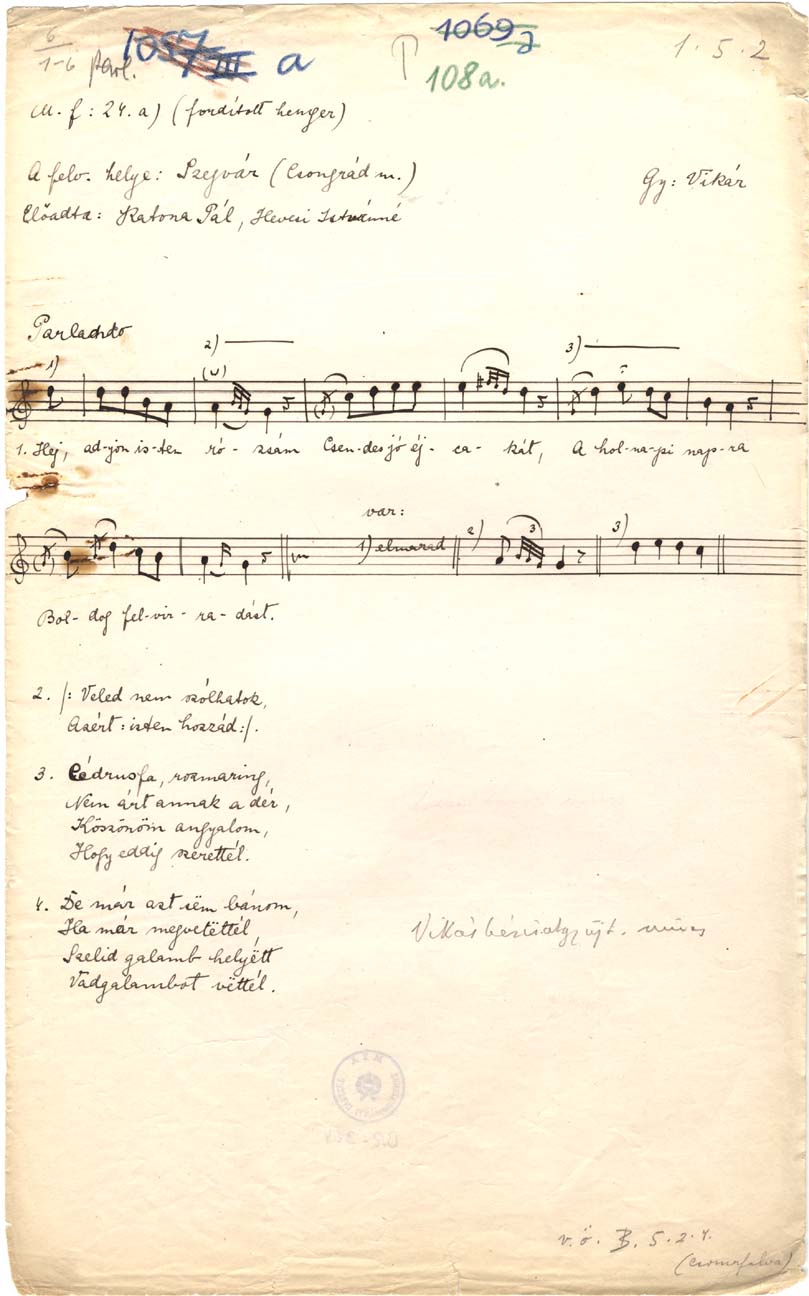 6
1-6 parl.
1057
III a
1069
108a.
1 . 5 . 2
M. f : 24. a) (fordított henger)
A felv. helye: Szegvár (Csongrád m.)
Gy: Vikár
Előadta: Katona Pál, Hevesi Istvánné
Parlando
1)
2)
3)
1. Hej, ad-jon is-ten ró - zsám Csen-des jó éj - ca - kát, A hol-na-pi nap-ra
var:
1) elmarad 2) 3 3)
Bol- dog fel-vir - ra- dást.
2. /: Veled nem szólhatok,
Azért : isten hozzád :/.
3. Cédrusfa, rozmaring,
Nem árt annak a dér,
Köszönöm angyalom,
Hogy eddig szerettél.
4. De már azt sëm bánom,
Ha már megvetëttél,
Szelid galamb helyëtt
Vadgalambot vëttél.
v.ö. B. 5.2.4.